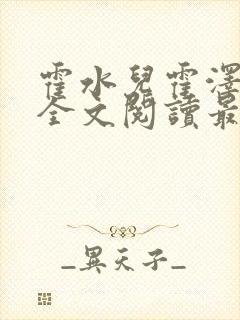 霍水兒霍澤
全文閱讀最
_異天子_